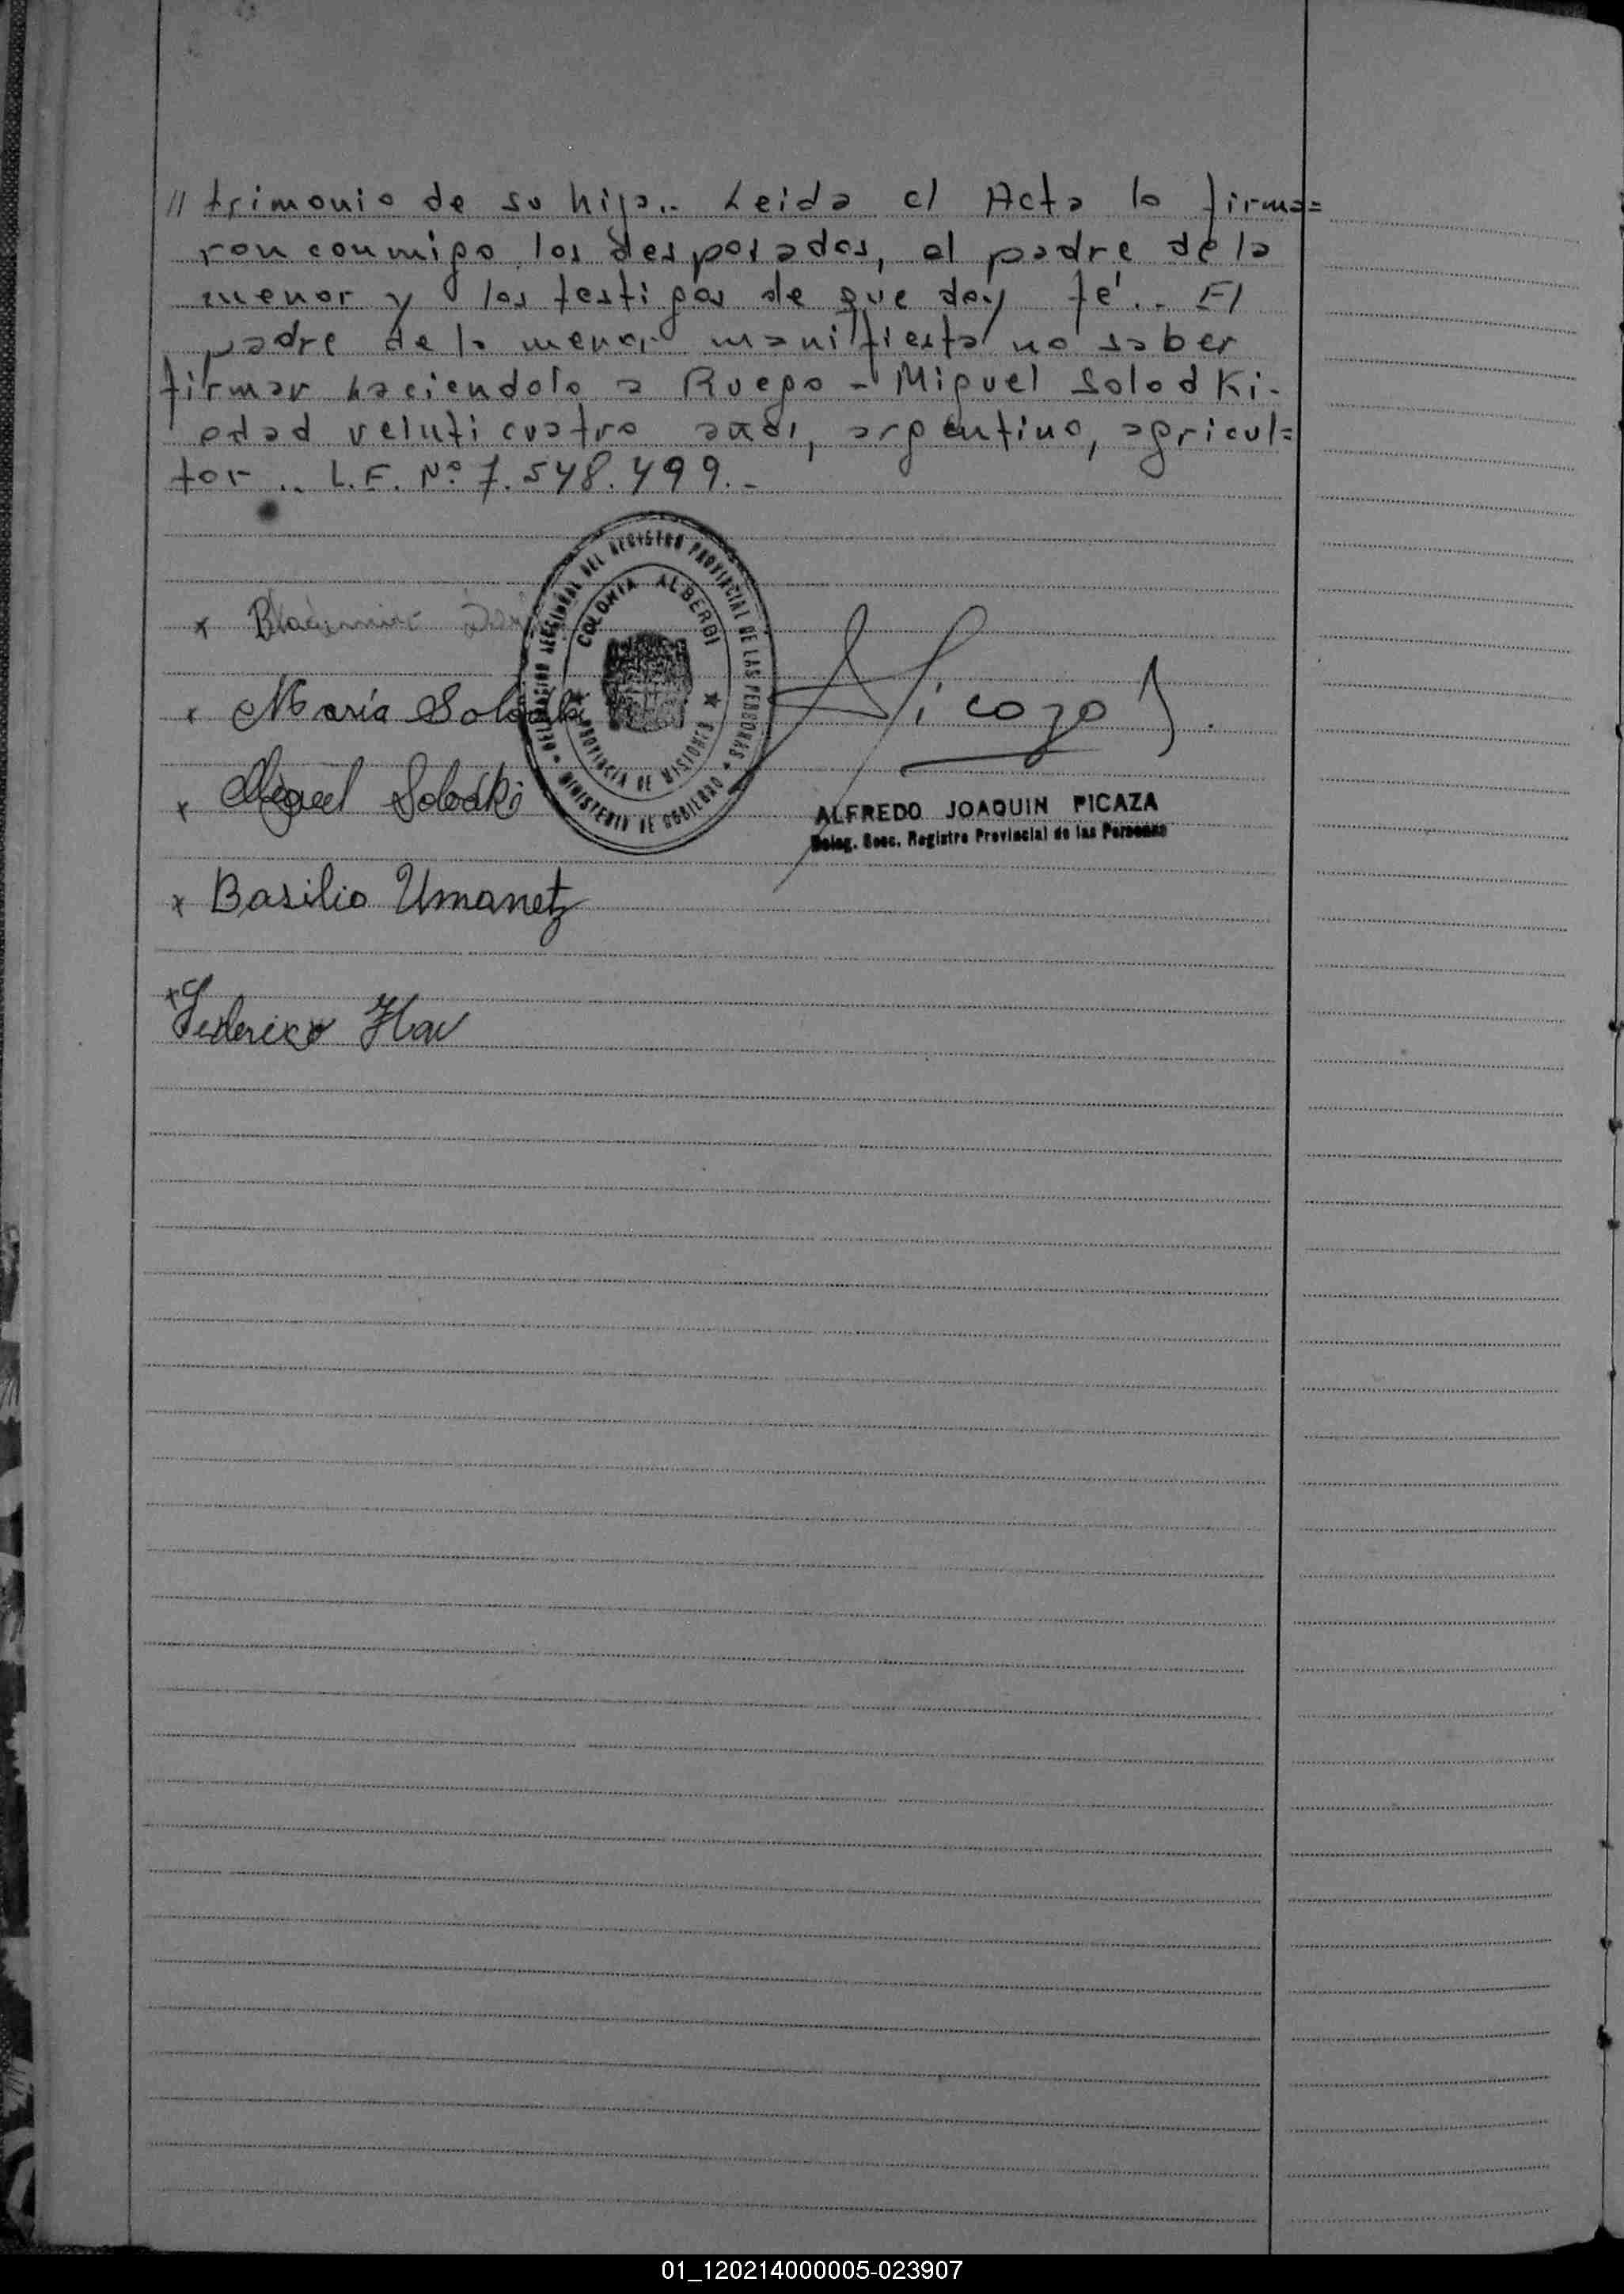 // trimonio de su hija.. Leida el Acta la firma=
ron conmigo los desposados, el padre de la
menor y los testigos de que doy fé.. El
padre de la menor manifiesta no saber
firmar haciendolo a Ruego - Miguel Solodki.
edad veinticuatro años, argentino, agricul=
tor .. L.E. Nº 7.548.499.-
DELEGACION SECCIONAL DEL REGISTRO PROVINCIAL DE LAS PERSONAS
MINISTERIO DE GOBIERNO
COLONIA ALBERDI
PROVINCIA DE MISIONES
x Bladimiro
x Maria Solodki
x Miguel Solodki
Picaza
ALFREDO JOAQUIN PICAZA
Deleg. Secc. Registro Provincial de las Personas
x Basilio Umanetz
x Federico Hav
01_120214000005-023907